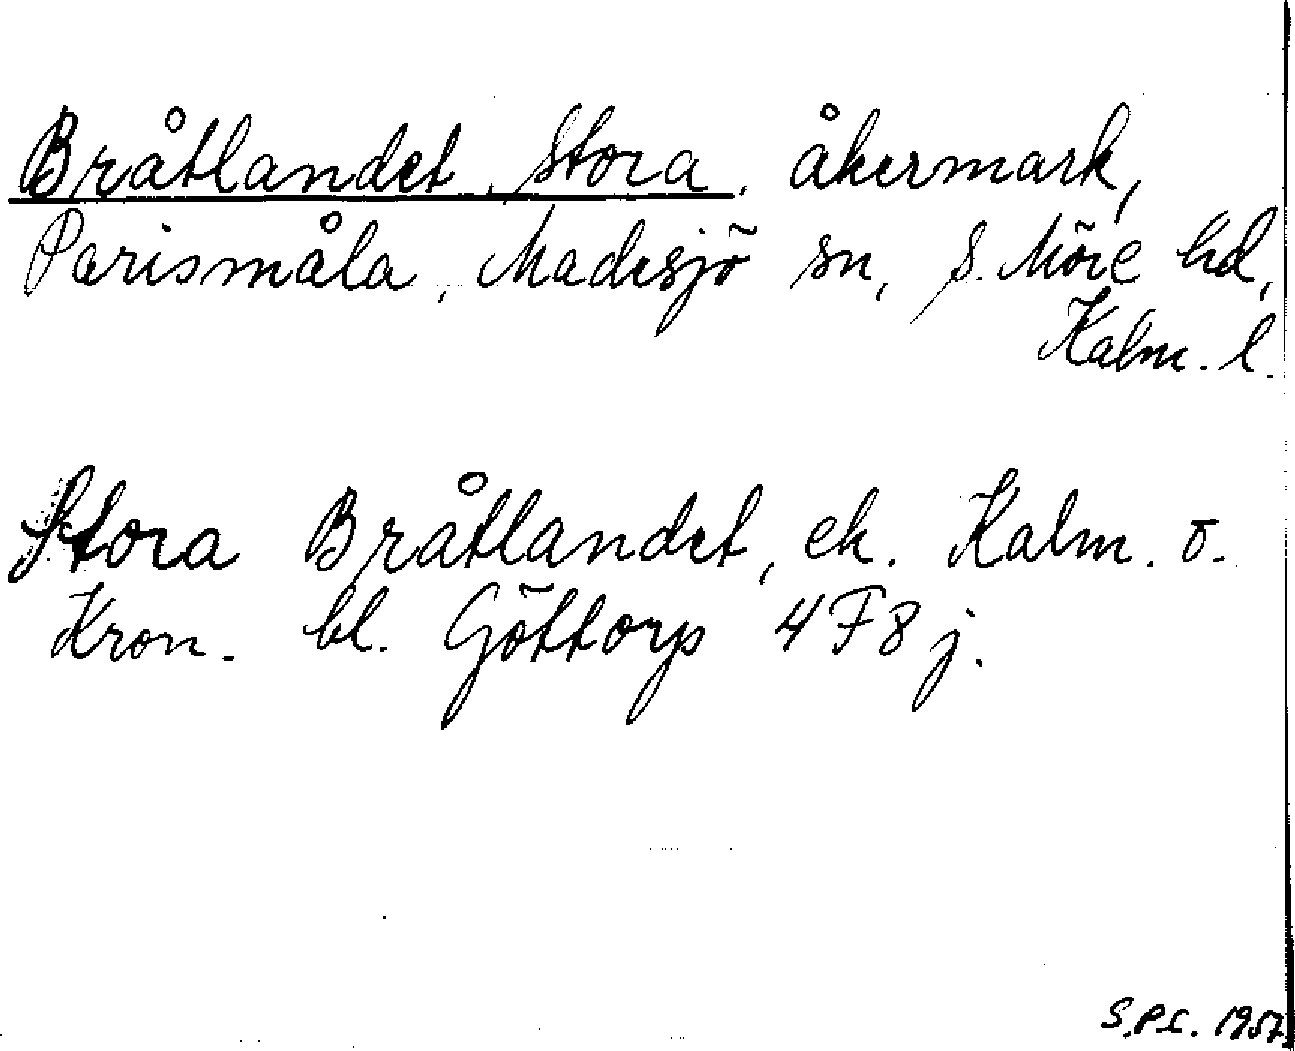 Bråtlandet, Stora, åkermark,
Parismåla, Madesjö sn, S. Möre hd,
Kalm. l.
Stora Bråtlandet, ek. Kalm. o.
Kron. bl. Göttorp 4 F 8 j.
S.P.L. 1957